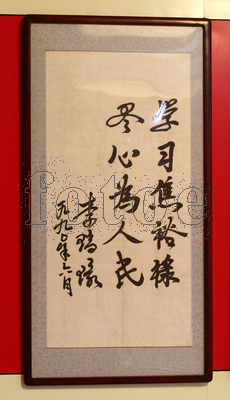 学习焦裕禄
尽心为人民
李瑞环
一九九〇年六月
fotoe